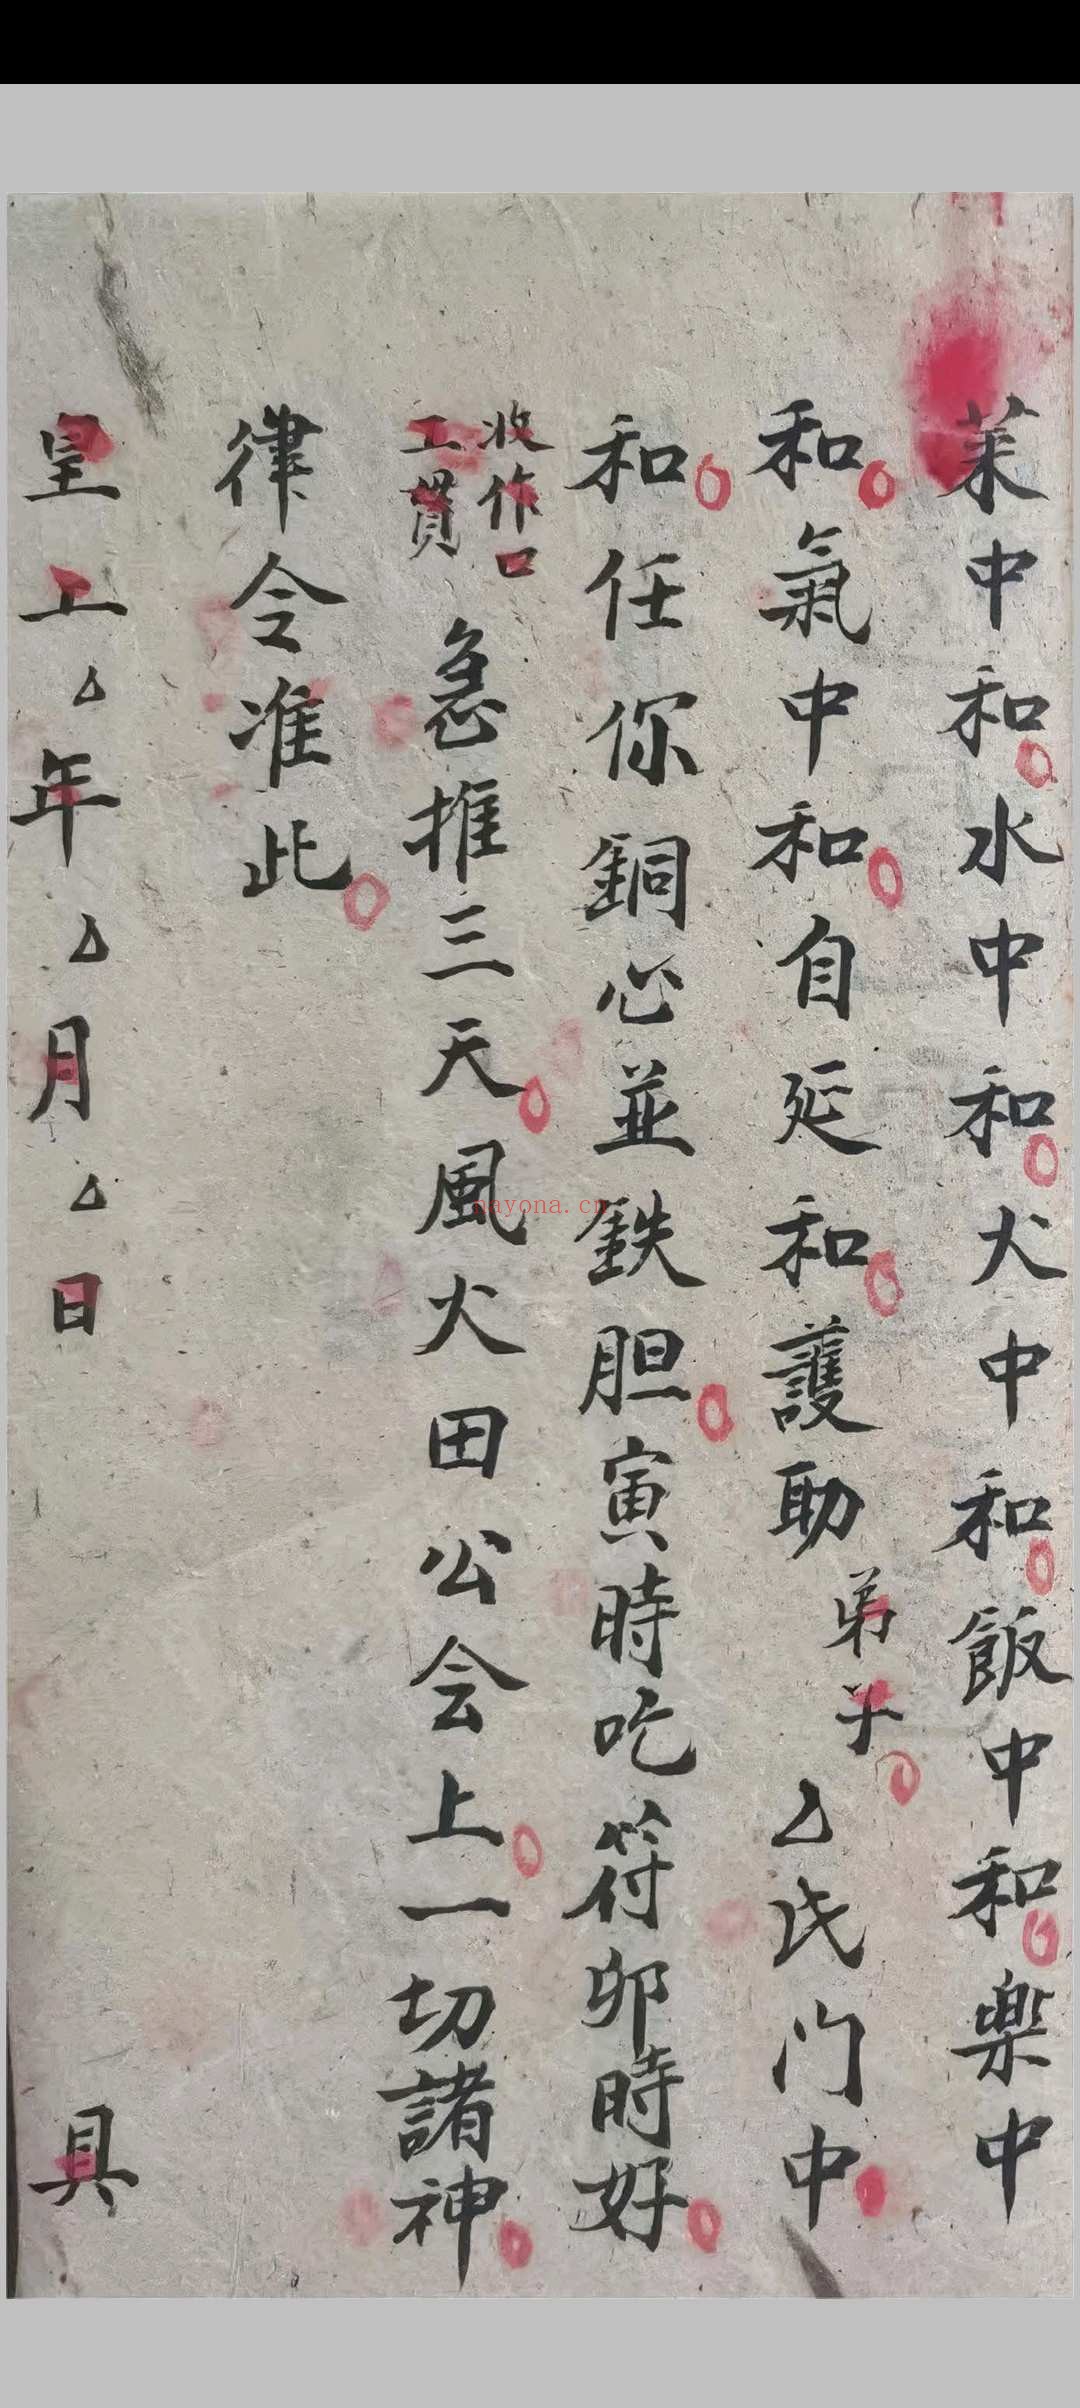 菜中和水中和火中和飯中和楽中
和氣中和自延和護助弟子厶氏门中
和任你銅心並鉄胆寅時吃符卯時好
收作口
工貫
急推三天風火田公会上一切諸神
律令准此
皇上厶年厶月厶日 具
nayona.cn